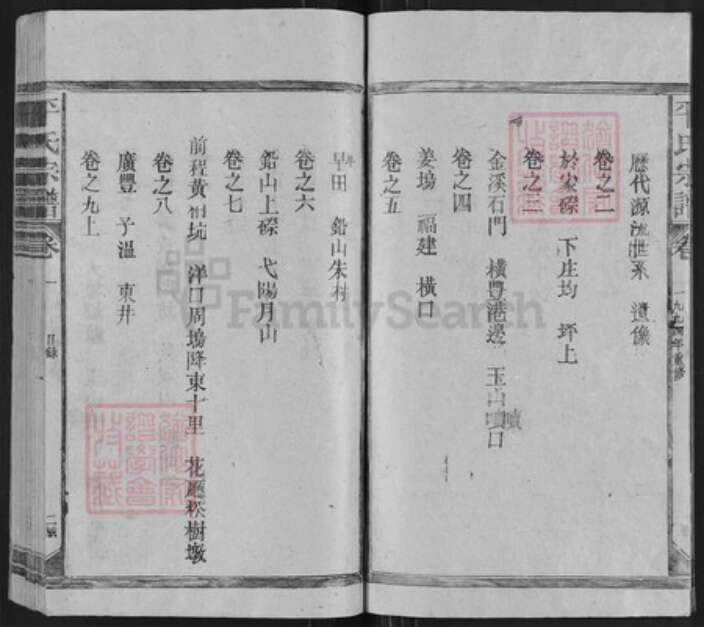 平氏宗譜 卷 一九九四年重修
歷代源流世系 遺像
卷之二
於家磜 下庄均 坪上
卷之三
金溪石門 橫豐港邊 玉山嘖口
卷之四
姜塢 福建 橫口
卷之五
早田 鉛山朱村
卷之六
鉛山上磜 弋陽月山
卷之七
前程黃柏坑 洋口周塢降東十里 花廳松樹墩
卷之八
廣豐 予溫 東井
卷之九上
平氏宗譜 卷一 目錄 二
FamilySearch